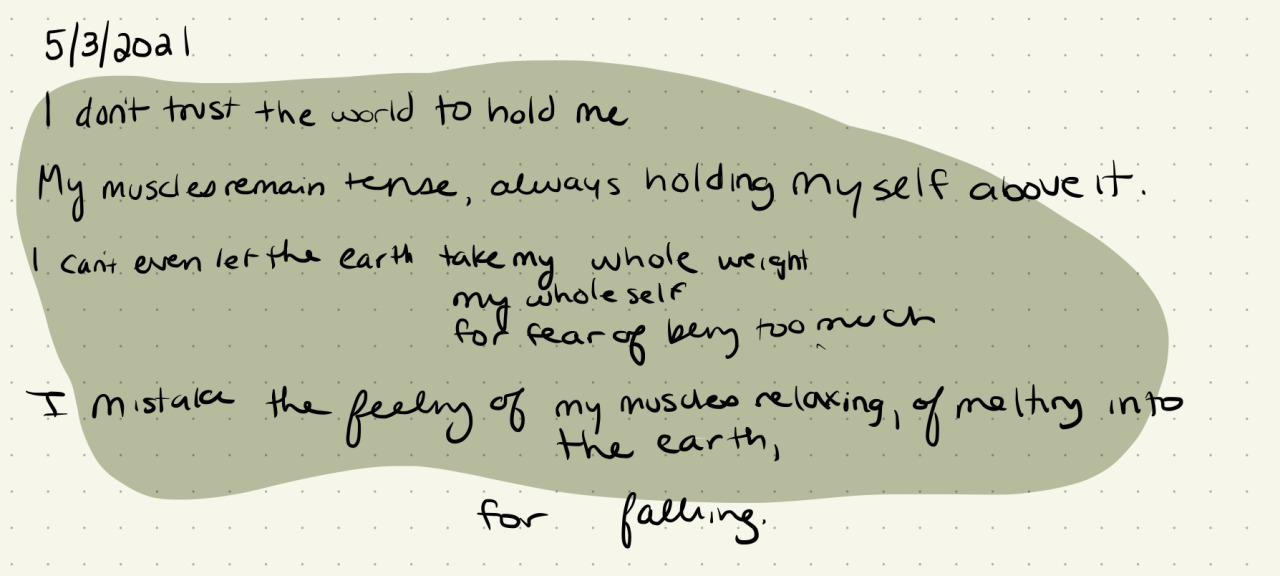 5/3/2021
I don't trust the world to hold me
My muscles remain tense, always holding myself above it.
I can't even let the earth take my whole weight
my whole self
for fear of being too much
I mistake the feeling of my muscles relaxing, of melting into
the earth,
for falling.